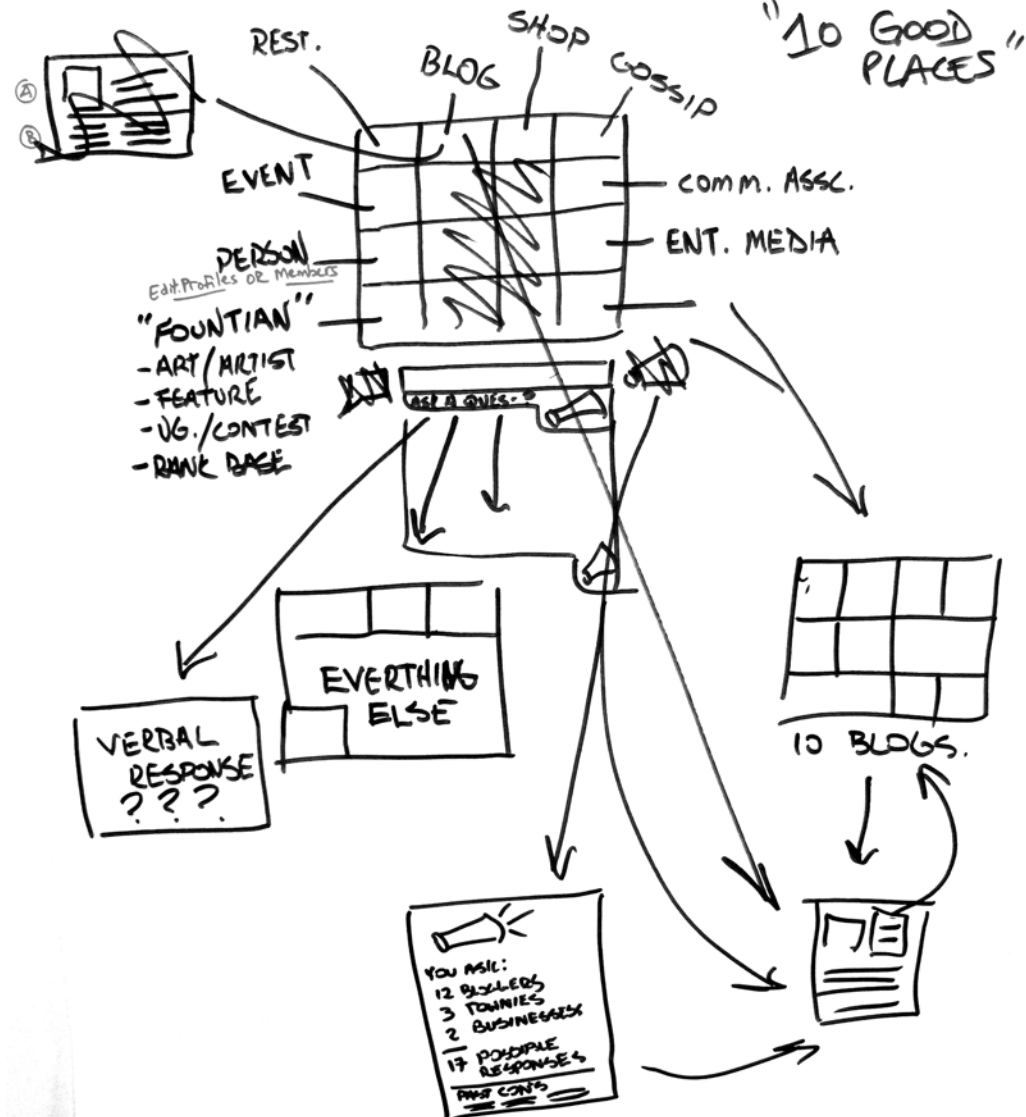 "10 GOOD
PLACES"
REST.
BLOG
SHOP
GOSSIP
A
B
EVENT
COMM. ASSC.
PERSON
ENT. MEDIA
Edit.Profiles OR Members
"FOUNTIAN"
- ART/ARTIST
- FEATURE
- VG./CONTEST
- RANK BASE
ASK A QUES-?
EVERTHING
ELSE
VERBAL
RESPONSE
? ? ?
10 BLOGS.
YOU ASK:
12 BLOGGERS
3 TOWNIES
2 BUSINESSES
17 POSSIBLE
RESPONSES
PAST CONS